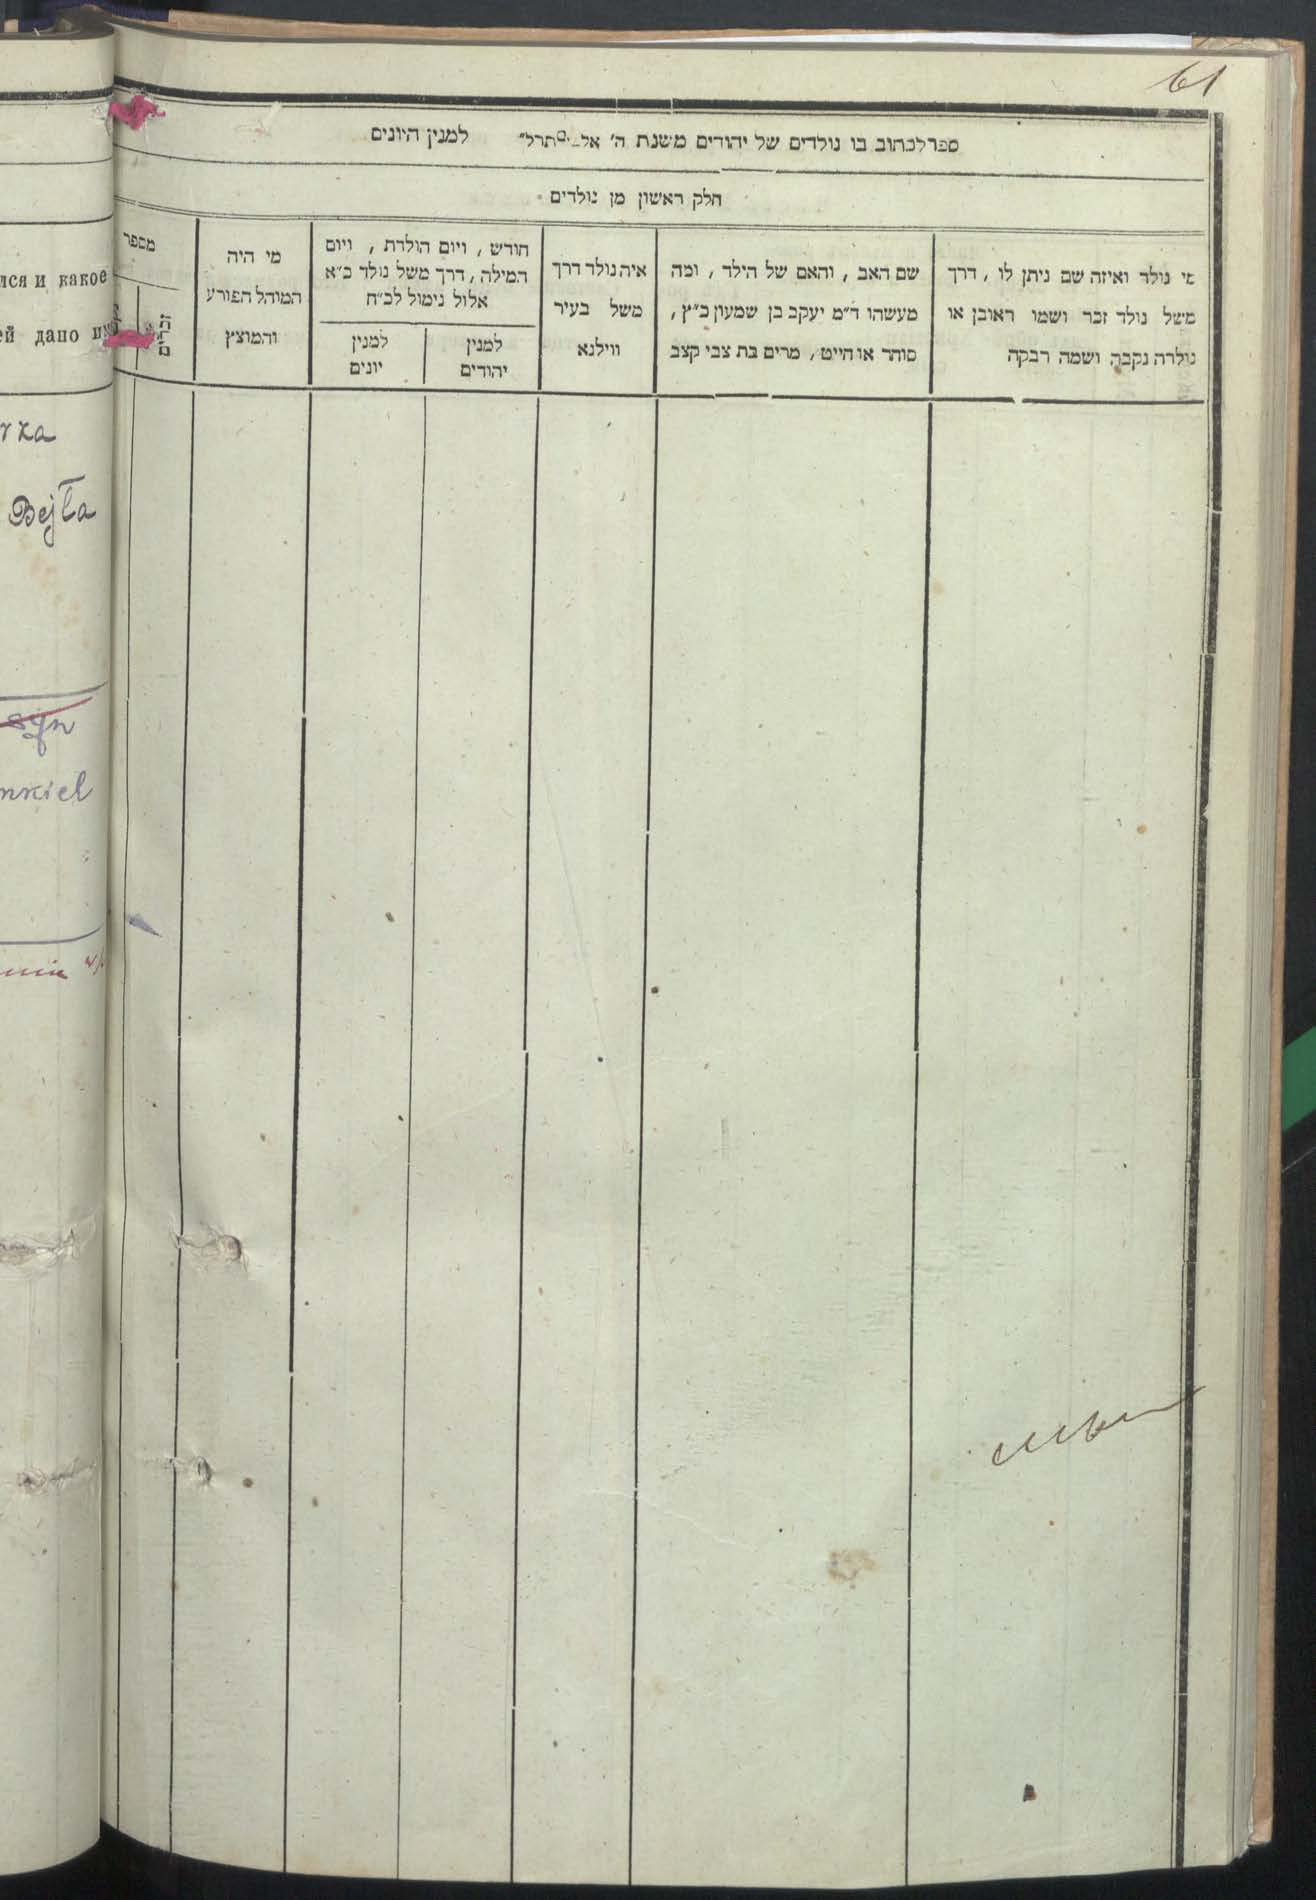 61
ספר לכתוב בו נולדים של יהודים משנת ה׳ למנין היונים
חלק ראשון מן נולדים
מי נולד ואיזה שם ניתן לו, דרך
משל נולד זכר ושמו ראובן או
נולדה נקבה ושמה רבקה
שם האב, והאם של הילד, ומה
מעשהו ד״מ יעקב בן שמעון כ״ץ,
סוחר או חייט, מרים בת צבי קצב
איה נולד דרך
משל בעיר
ווילנא
חודש, ויום הולדת, ויום
המילה, דרך משל נולד כ״א
אלול נימול לכ״ח
למנין
יהודים
למנין
יונים
מי היה
המוהל הפורע
והמוצץ
מספר
זכרים
лся и какое
ей дано
Bejła